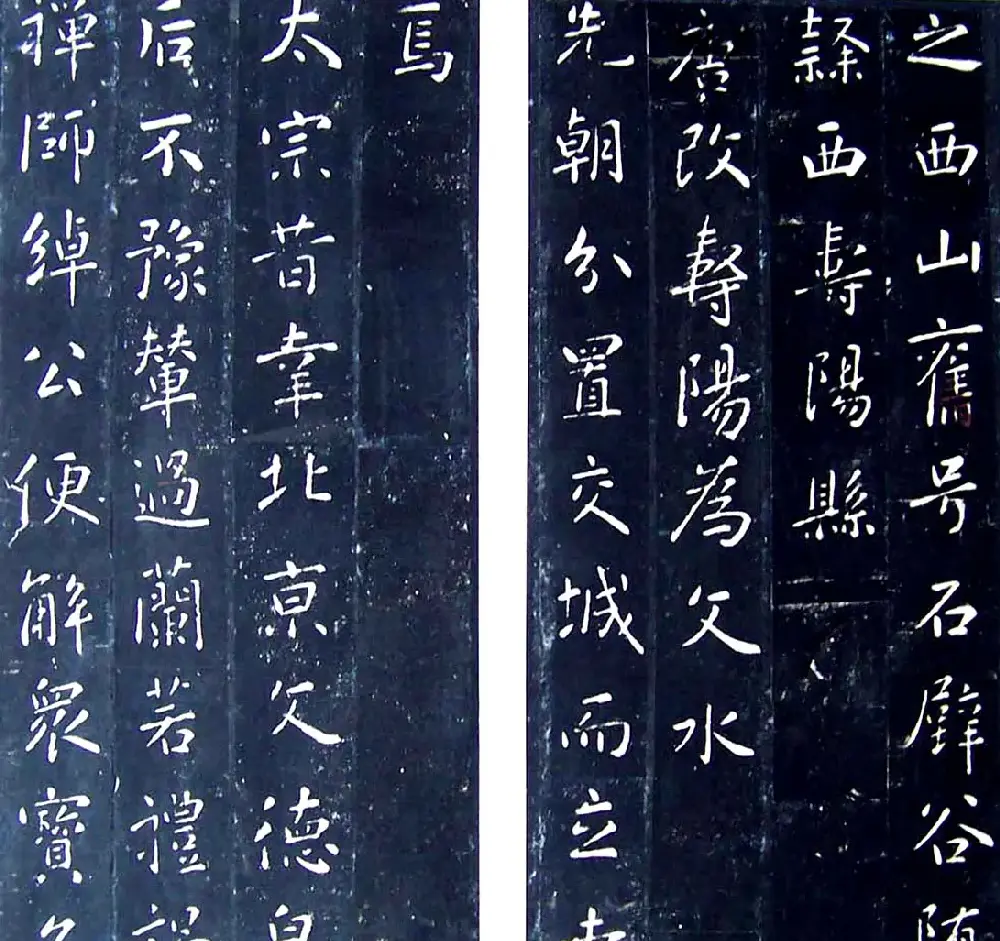 之西山舊号石壁谷隋
隸西壽陽縣
廣改壽陽為文水
先朝分置交城而立
焉
太宗昔幸北京文德皇
后不豫輦過蘭若禮
禪師綽公便解眾寶名